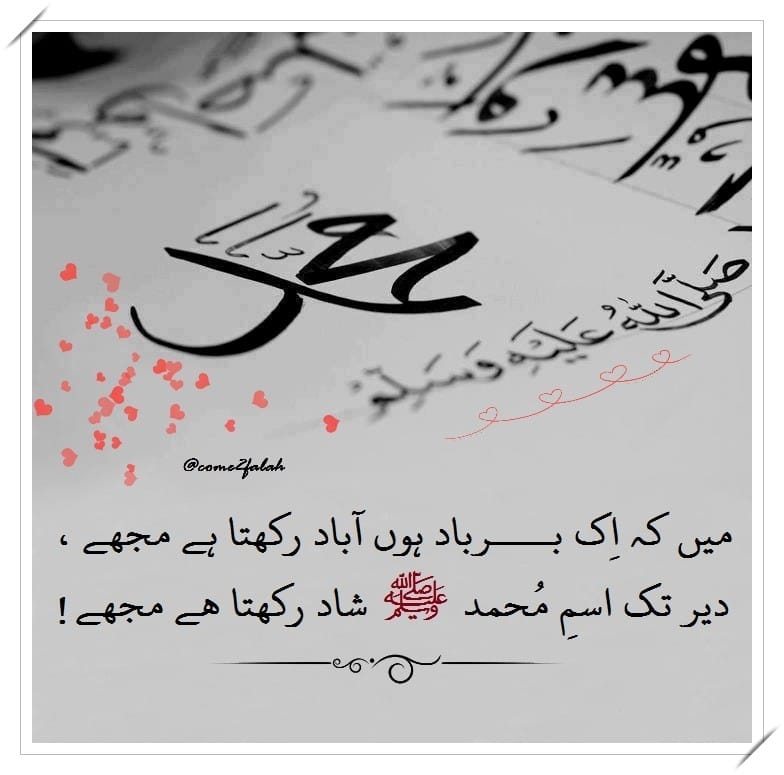 محمد
صَلَّى اللّٰهُ عَلَيْهِ وَسَلَّمَ
@come2falah
میں کہ اِک بـــــرباد ہوں آباد رکھتا ہے مجھے ،
دیر تک اسمِ مُحمد ﷺ شاد رکھتا ھے مجھے !